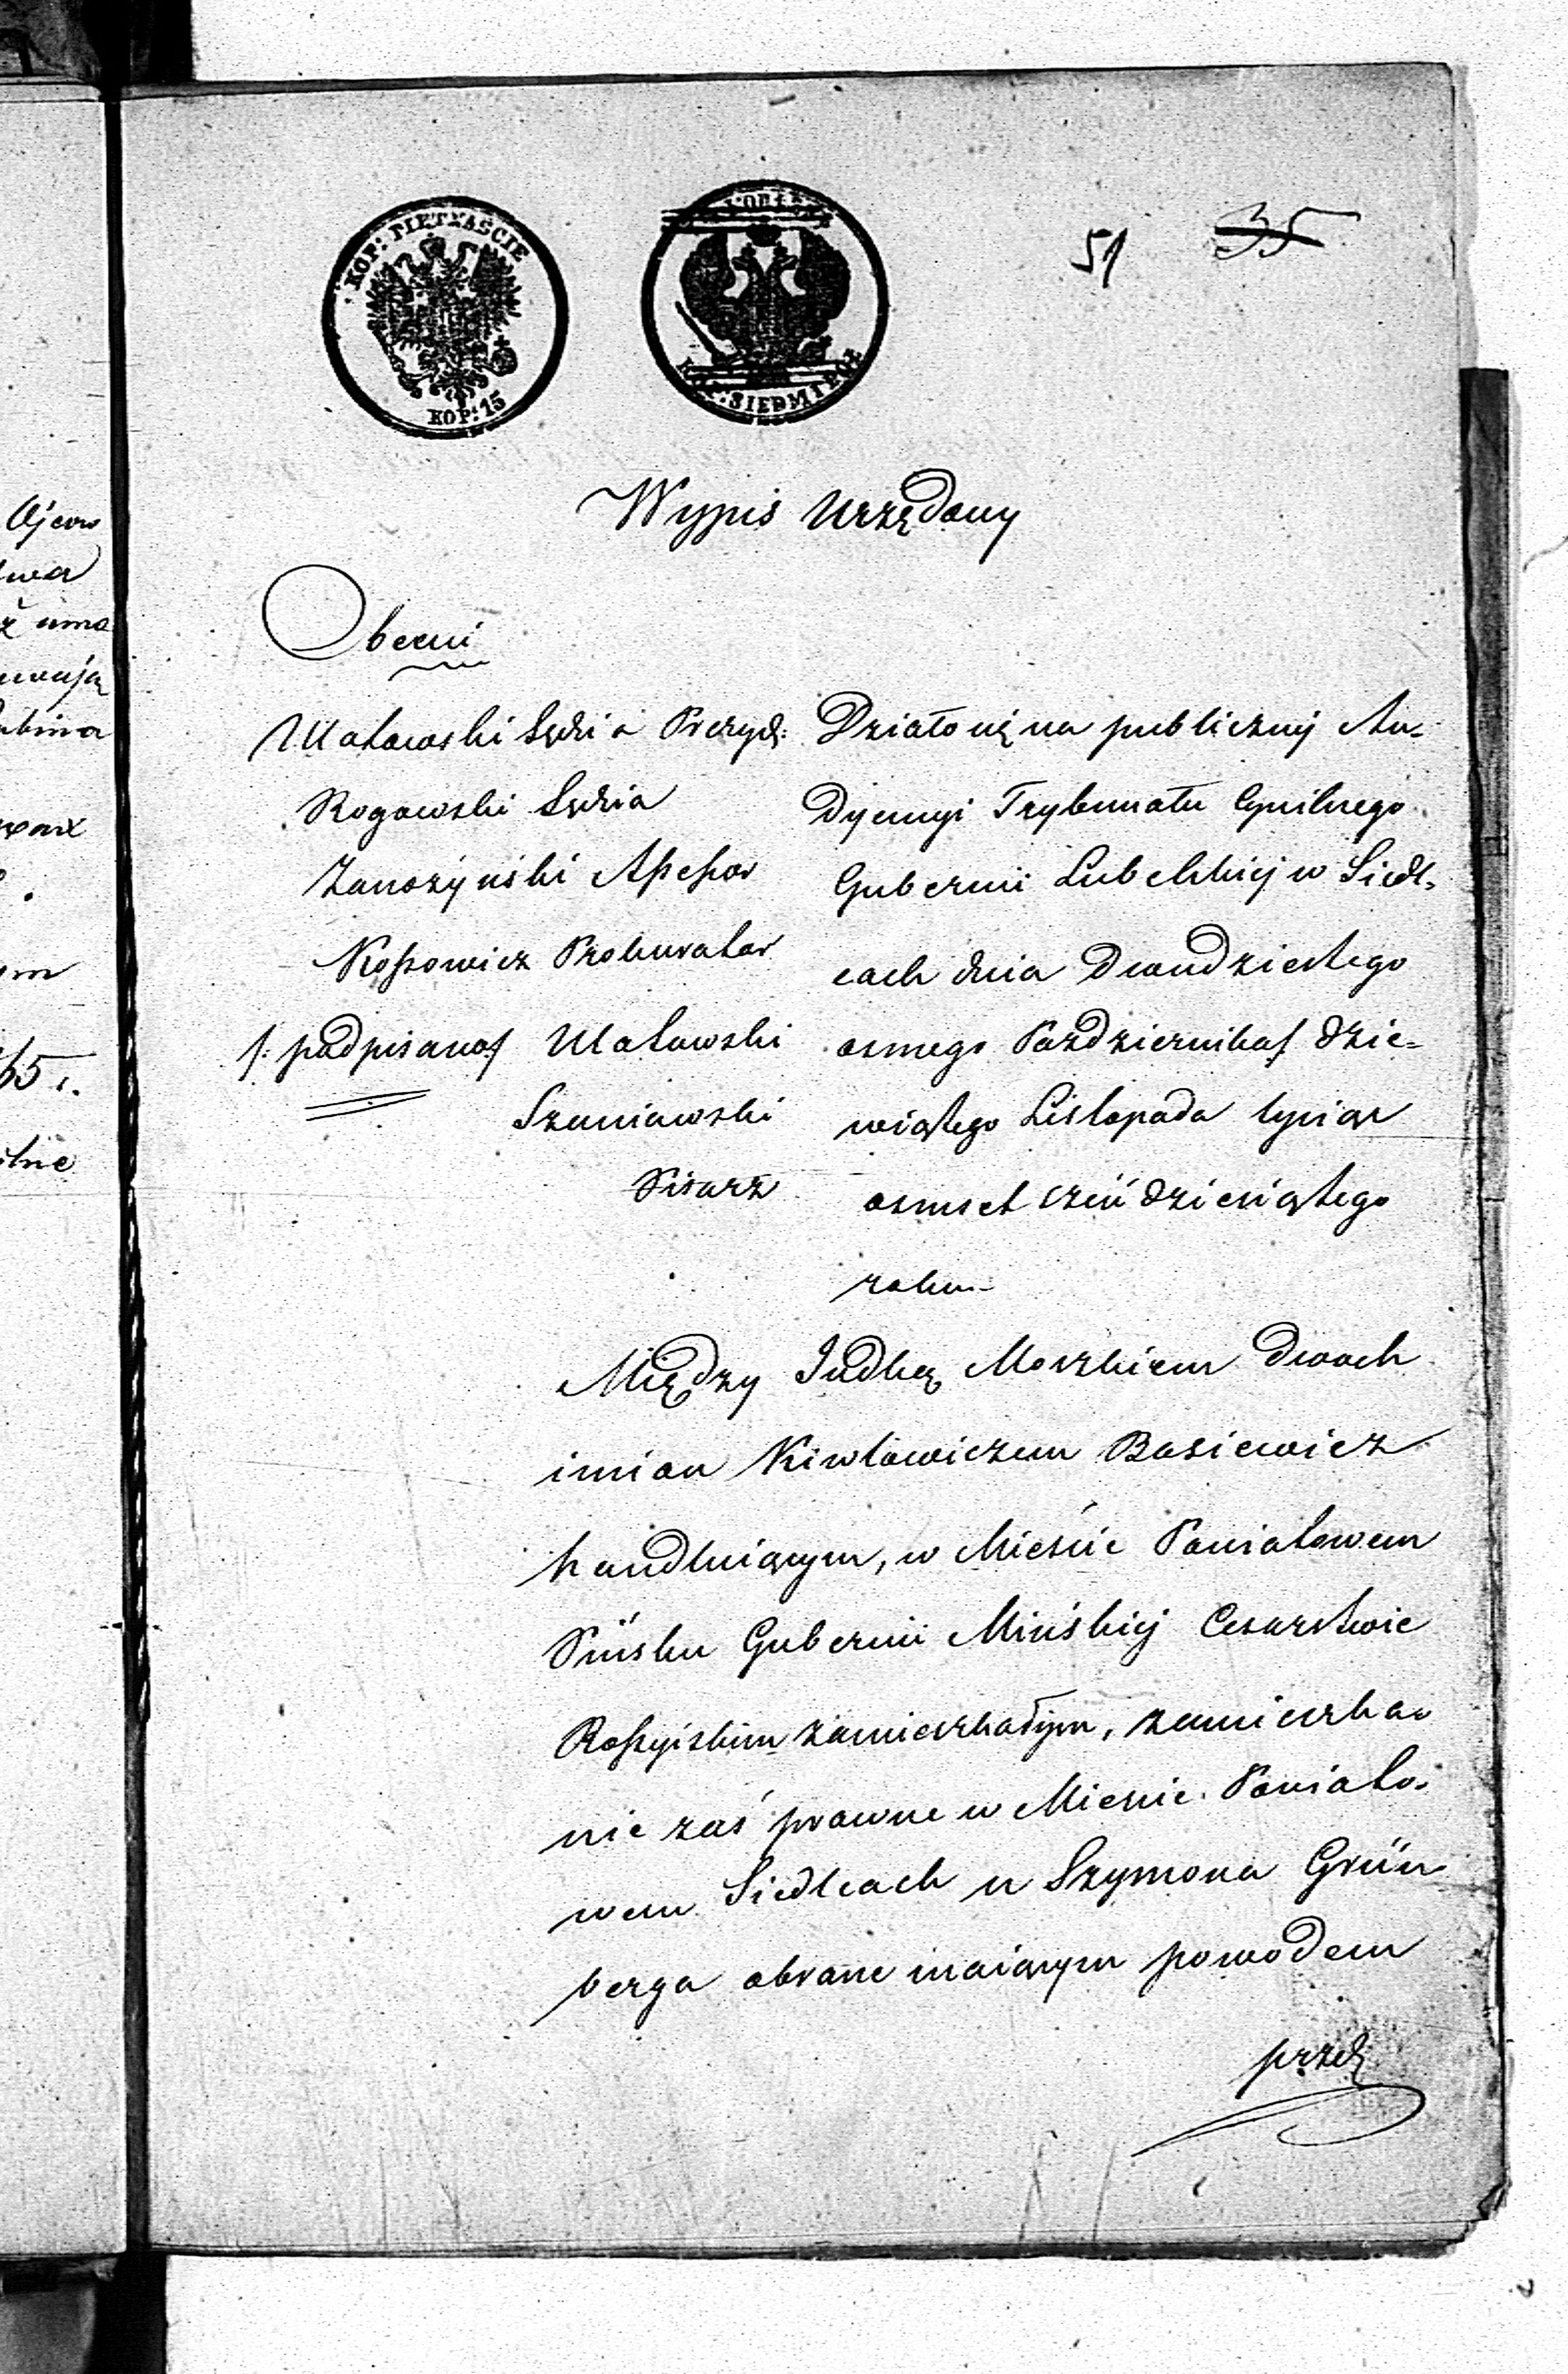 KOP: PIĘTNAŚCIE
KOP: 15
KOP: SIEDM I PÓŁ
51 35
Wypis Urzędowy
Obecni
Ułatowski Sędzia Prezyd:
Rogowski Sędzia
Assessor
Kossowicz Prokurator
/: podpisano/ Ułatowski
Szaniawski
Pisarz
Działo się na publicznej Au-
dyencyi Trybunału Cywilnego
Gubernii Lubelskiej w Siedl-
cach dnia Dwudziestego
osmego Października/ dzie-
wiątego Listopada tysiąc
osmset sześćdziesiątego
roku
Między Judką Moszkiem dwoch
imion Kiwłowiczem Basiewicz
handluiącym, w Mieście Powiatowem
Pińsku Gubernii Mińskiej Cesarstwie
Rossyiskim zamieszkałym, zamieszka-
nie zaś prawne w Mieście Powiato-
wem Siedlcach u Szymona Grün
berga obrane maiącym powodem
przez
Ojcow
65 r.